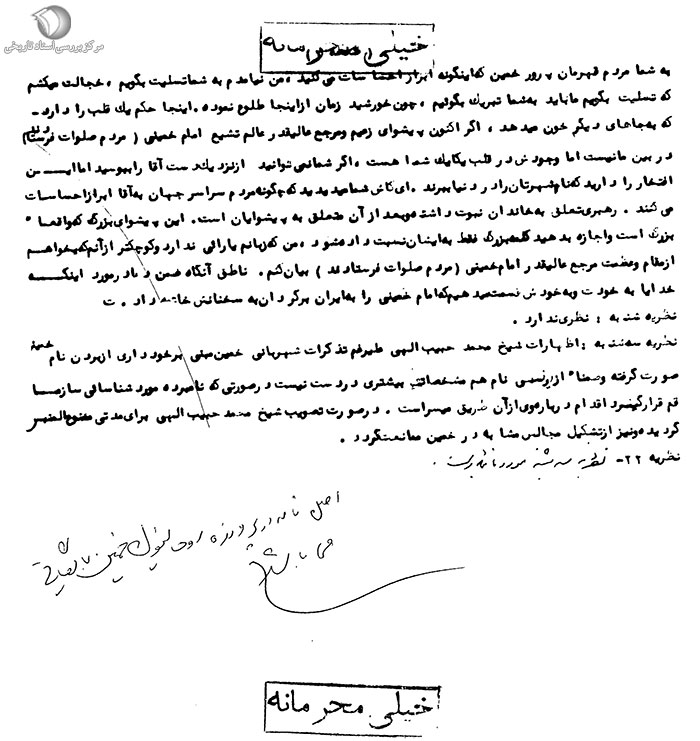 مرکز بررسی اسناد تاریخی
خیلی محرمانه
به شما مردم قهرمان پرور خمین که اینگونه ابراز احساسات می کنید ، من نیامدم به شما تسلیت بگویم ، خجالت میکشم
که تسلیت بگویم ما باید به شما تبریک بگوئیم ، چون خورشید زمان از اینجا طلوع نموده . اینجا حکم یک قلب را دارد -
که به جاهای دیگر خون میدهد ، اگر اکنون پیشوای زعیم و مرجع عالیقدر عالم تشیع امام خمینی ( مردم صلوات فرستادند )
در بین ما نیست اما وجودش در قلب یکایک شما هست ، اگر شما نمی توانید از نزدیک دست آقا را ببوسید اما ایـــن
افتخار را دارید که نام شهرتان را در دنیا ببرند . ای کاش شما میدیدید که چگونه مردم سراسر جهان به آقا ابراز احساسات
می کنند . رهبری تعلق به خاندان نبوت داشته و بعد از آن متعلق به پیشوایان است . این پیشوای بزرگ که واقعاً
بزرگ است و اجازه بدهید کلمه بزرگ فقط به ایشان نسبت داده شود ، من که زبانم یارائی ندارد و کوچکتر از آنم که بخواهم
از مقام و عظمت مرجع عالیقدر امام خمینی ( مردم صلوات فرستادند ) بیان کنم . ناطق آنگاه ضمن دعا در مورد اینکـــه
خدایا به خودت و به خودش قسمت میدهیم که امام خمینی را به ایران برگردان به سخنانش خاتمه داد . ت
نظریه شنبه : نظری ندارد .
نظریه سه شنبه : اظهارات شیخ محمد حبیب الهی علیرغم تذکرات شهربانی خمین مبنی بر خودداری از بردن نام خمینی
صورت گرفته و ضمناً از نامبرده هم مشخصات بیشتری در دست نیست در صورتی که نامبرده مورد شناسائی سازمـــا
قم قرار گیرد اقدام درباره وی از آن طریق میسر است . در صورت تصویب شیخ محمد حبیب الهی برای مدتی ممنوع المنبر
گردیده و نیز از تشکیل مجالس مشابه در خمین ممانعت گردد .
نظریه ۲۲- نظریه سه شنبه مورد تائید است .
اصل نامه در پرونده
می باشد
خیلی محرمانه